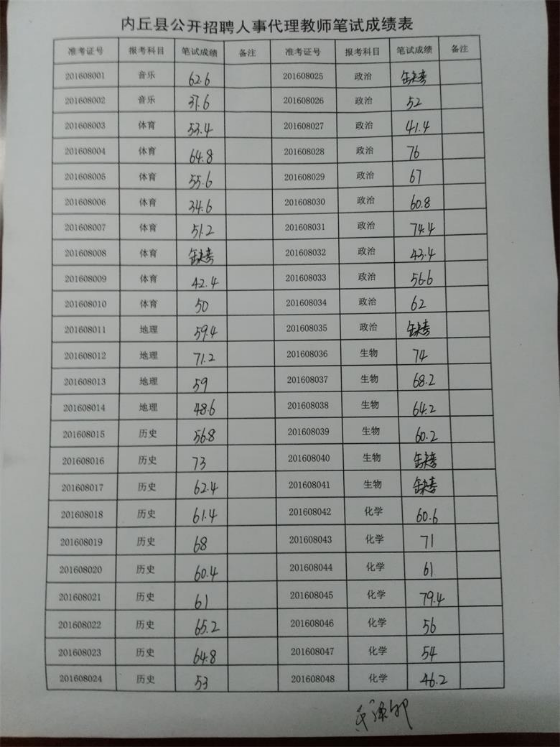 内丘县公开招聘人事代理教师笔试成绩表
准考证号 报考科目 笔试成绩 备注 准考证号 报考科目 笔试成绩 备注
201608001 音乐 62.6 201608025 政治 缺考
201608002 音乐 37.6 201608026 政治 52
201608003 体育 53.4 201608027 政治 41.4
201608004 体育 64.8 201608028 政治 76
201608005 体育 55.6 201608029 政治 67
201608006 体育 34.6 201608030 政治 60.8
201608007 体育 51.2 201608031 政治 74.4
201608008 体育 缺考 201608032 政治 43.4
201608009 体育 42.4 201608033 政治 56.6
201608010 体育 50 201608034 政治 62
201608011 地理 59.4 201608035 政治 缺考
201608012 地理 71.2 201608036 生物 74
201608013 地理 59 201608037 生物 68.2
201608014 地理 48.6 201608038 生物 64.2
201608015 历史 56.8 201608039 生物 60.2
201608016 历史 73 201608040 生物 缺考
201608017 历史 62.4 201608041 生物 缺考
201608018 历史 61.4 201608042 化学 60.6
201608019 历史 68 201608043 化学 71
201608020 历史 60.4 201608044 化学 61
201608021 历史 61 201608045 化学 79.4
201608022 历史 65.2 201608046 化学 56
201608023 历史 64.8 201608047 化学 54
201608024 历史 53 201608048 化学 46.2